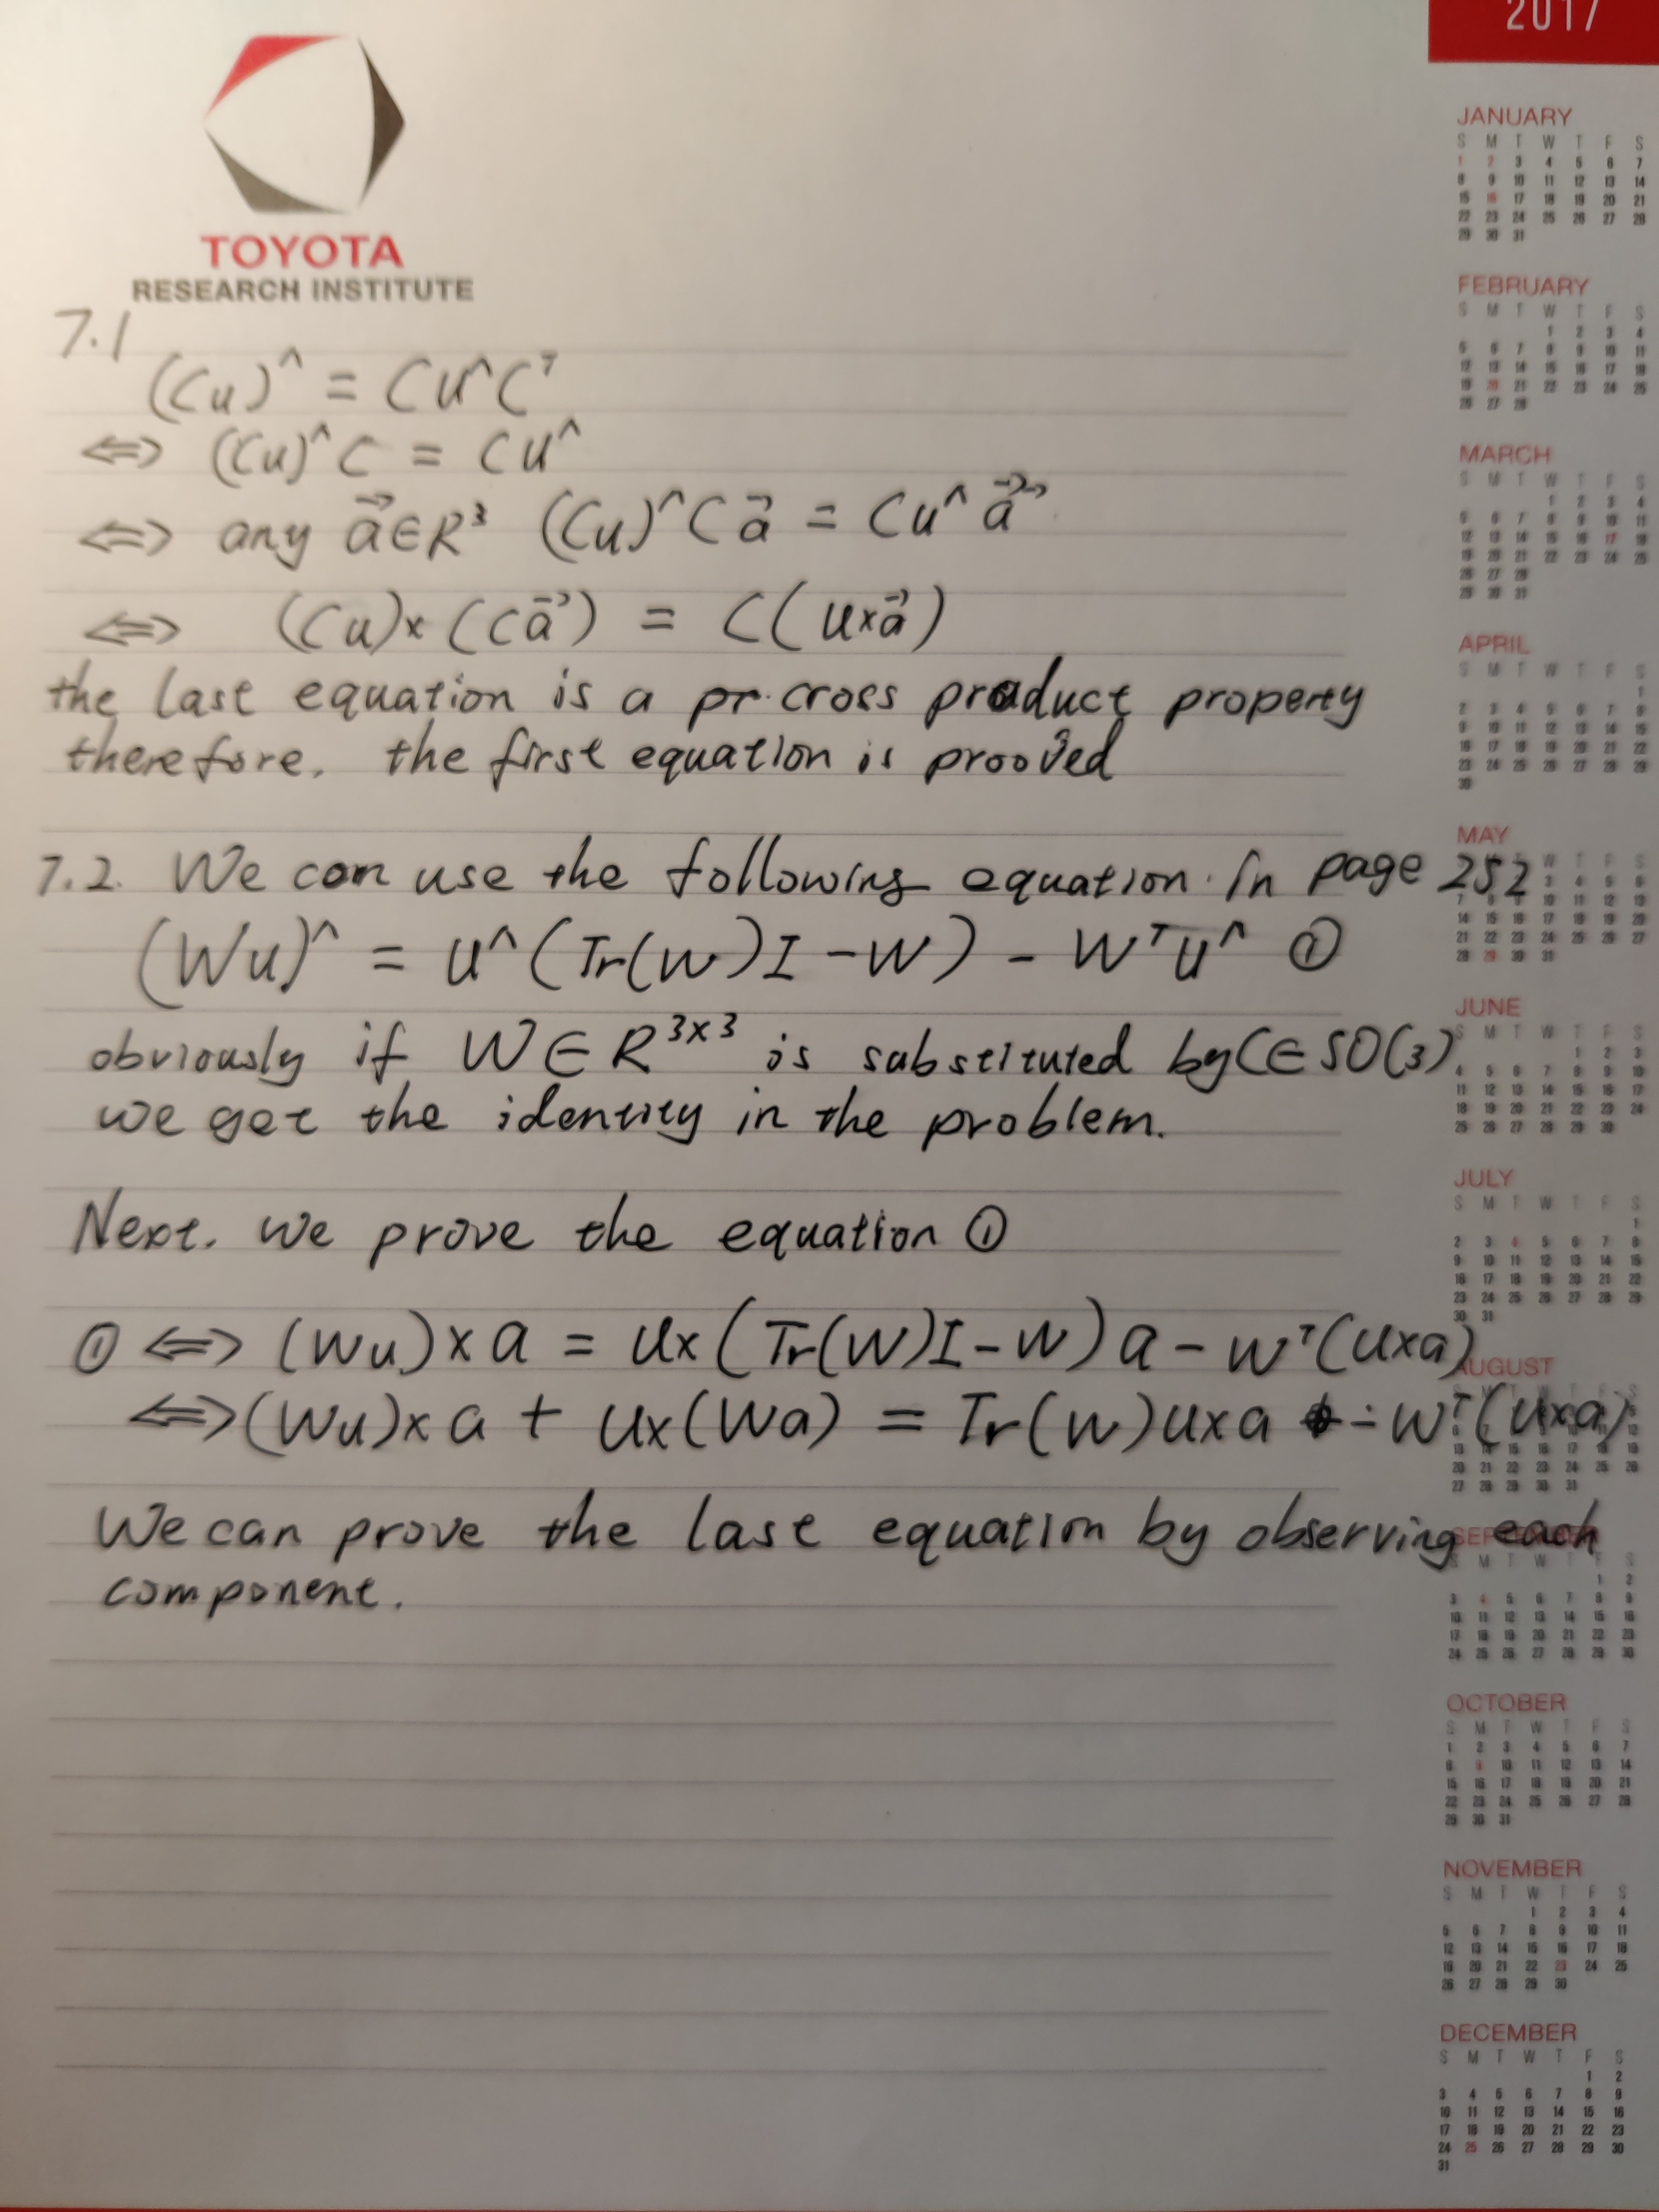 2017
TOYOTA
RESEARCH INSTITUTE
7.1
(Cu)^ = Cu^Cᵀ
⇔ (Cu)^C = Cu^
⇔ any a⃗∈R³ (Cu)^Ca⃗ = Cu^a⃗
⇔ (Cu)×(Ca⃗) = C(u×a⃗)
the last equation is a pr cross product property
therefore, the first equation is prooved
7.2. We can use the following equation in page 252
(Wu)^ = u^(Tr(W)I-W) - Wᵀu^ ①
obviously if W∈R³ˣ³ is substituted by C∈SO(3)
we get the identity in the problem.
Next. we prove the equation ①
① ⇔ (Wu)×a = u×(Tr(W)I-W)a - Wᵀ(u×a)
⇔ (Wu)×a + u×(Wa) = Tr(W)u×a - Wᵀ(u×a)
We can prove the last equation by observing each
component.
JANUARY
S M T W T F S
1 2 3 4 5 6 7
8 9 10 11 12 13 14
15 16 17 18 19 20 21
22 23 24 25 26 27 28
29 30 31
FEBRUARY
S M T W T F S
1 2 3 4
5 6 7 8 9 10 11
12 13 14 15 16 17 18
19 20 21 22 23 24 25
26 27 28
MARCH
S M T W T F S
1 2 3 4
5 6 7 8 9 10 11
12 13 14 15 16 17 18
19 20 21 22 23 24 25
26 27 28
29 30 31
APRIL
S M T W T F S
1
2 3 4 5 6 7 8
9 10 11 12 13 14 15
16 17 18 19 20 21 22
23 24 25 26 27 28 29
30
MAY
14 15 16 17 18 19 20
21 22 23 24 25 26 27
28 29 30 31
JUNE
S M T W T F S
1 2 3
4 5 6 7 8 9 10
11 12 13 14 15 16 17
18 19 20 21 22 23 24
25 26 27 28 29 30
JULY
S M T W T F S
1
2 3 4 5 6 7 8
9 10 11 12 13 14 15
16 17 18 19 20 21 22
23 24 25 26 27 28 29
30 31
AUGUST
20 21 22 23 24 25 26
27 28 29 30 31
SEPTEMBER
S M T W T F S
1 2
3 4 5 6 7 8 9
10 11 12 13 14 15 16
17 18 19 20 21 22 23
24 25 26 27 28 29 30
OCTOBER
S M T W T F S
1 2 3 4 5 6 7
8 9 10 11 12 13 14
15 16 17 18 19 20 21
22 23 24 25 26 27 28
29 30 31
NOVEMBER
S M T W T F S
1 2 3 4
5 6 7 8 9 10 11
12 13 14 15 16 17 18
19 20 21 22 23 24 25
26 27 28 29 30
DECEMBER
S M T W T F S
1 2
3 4 5 6 7 8 9
10 11 12 13 14 15 16
17 18 19 20 21 22 23
24 25 26 27 28 29 30
31